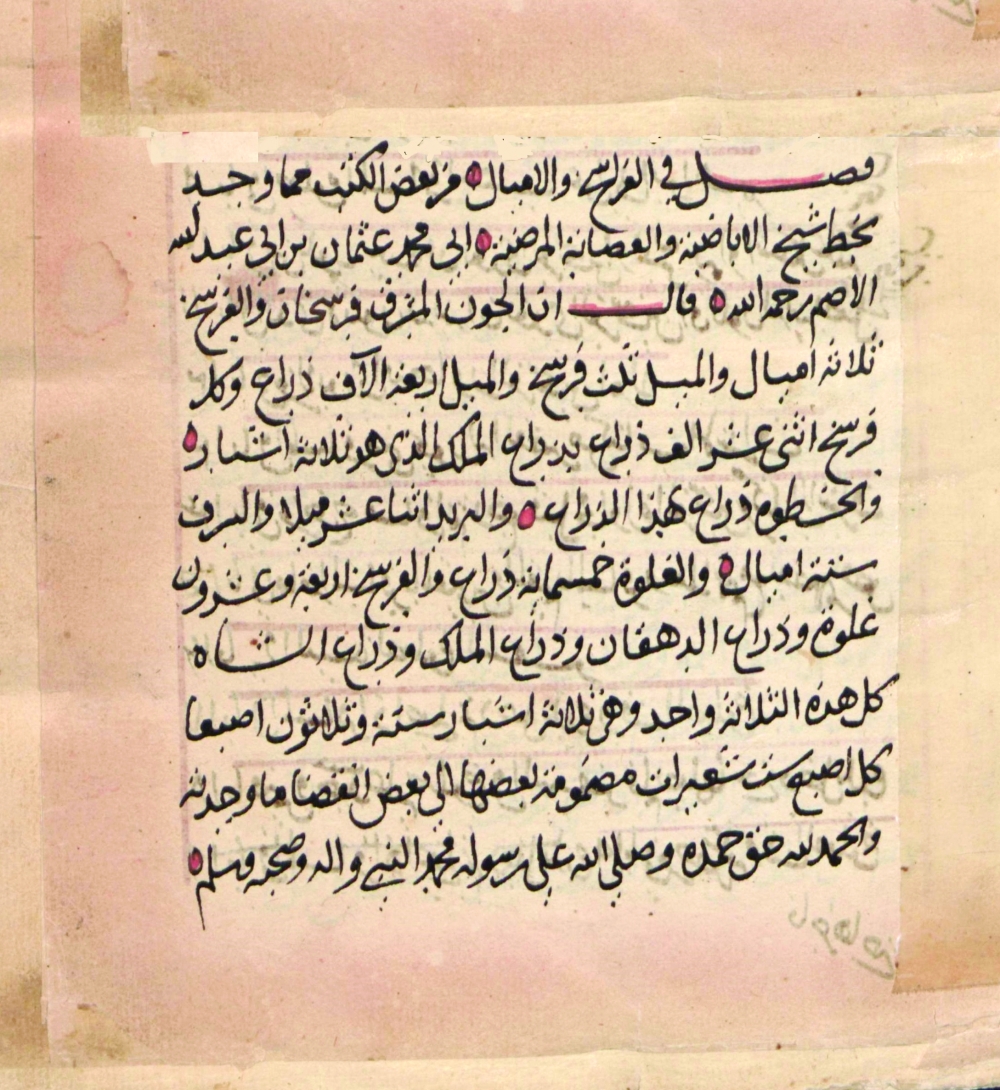 فصل في الفراسخ والاميال ه من بعض الكتب مما وجد
بخط شيخ الاباضية والعصابة المرضية ه ابي محمد عثمان بن ابي عبد لله
الاصم رحمه الله ه قال ان الجون المتزف فرسخان والفرسخ
ثلاثة اميال والميل ثلث فرسخ والميل اربعة الآف ذراع وكل
فرسخ اثنى عشر الف ذراع بذراع الملك الذي هو ثلاثة اشبار ه
والخطوه ذراع بهذا الذراع ه والبريد اثنا عشر ميلا والبرف
ستة اميال ه والغلوة خمسمائة ذراع والفرسخ اربعة وعشرون
غلوة وذراع الدهقان وذراع الملك وذراع الشاه
كل هذه الثلاثة واحد وهى ثلاثة اشبار ستة وثلاثون اصبعا
كل اصبع ست شعيرات مضمومة بعضها الى بعض انقضا ما وجدته
والحمد لله حق حمده وصلى الله على رسوله محمد النبي واله وصحبه وسلم ه